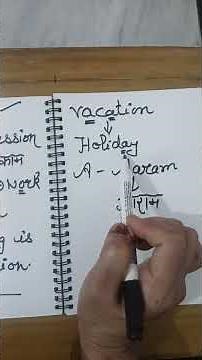 ession
काम
work
g is
ion.
vacation
Holiday
A -